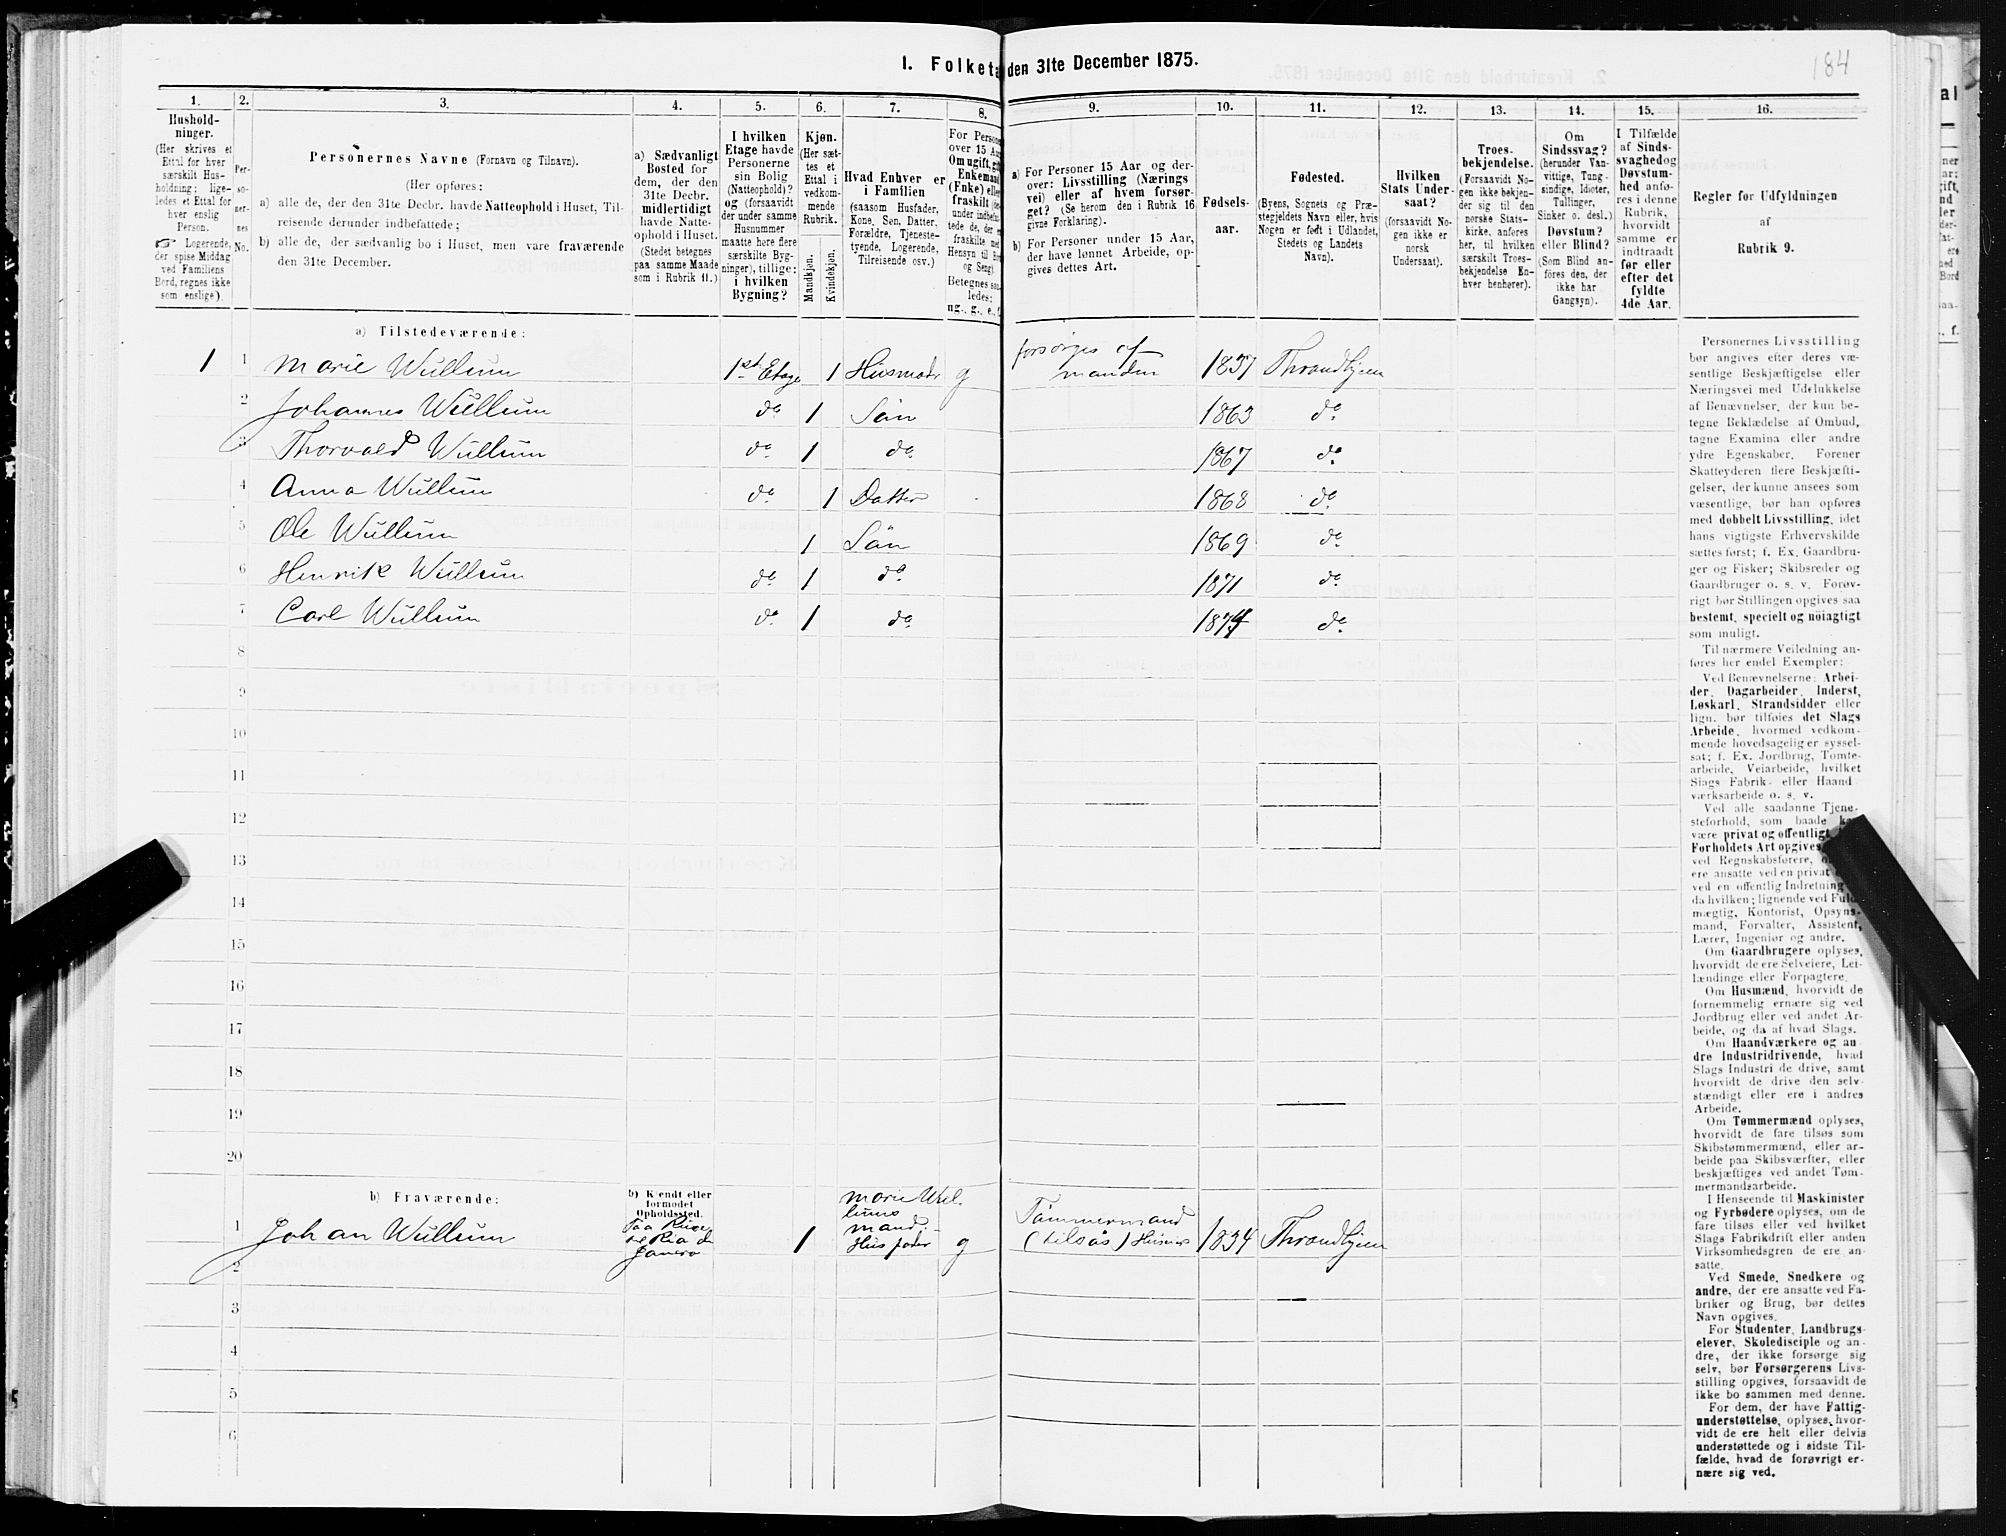 184
1. Folketa den 31te December 1875.
1. 2. 3. 4. 5. 6. 7. 8. 9. 10. 11. 12. 13. 14. 15. 16.
Hushold-
ninger.
(Her skrives et
Ettal for hver
særskilt Hus-
holdning; lige-
ledes et Ettal for
hver enslig
Person.
☞ Logerende,
der spise Middag
ved Familiens
Bord, regnes ikke
som enslige).
Per-
so-
ner-
nes
No.
Personernes Navne (Fornavn og Tilnavn).
(Her opføres:
a) alle de, der den 31te Decbr. havde Natteophold i Huset, Til-
reisende derunder indbefattede;
b) alle de, der sædvanlig bo i Huset, men vare fraværende
den 31te December.
a) Sædvanligt
Bosted for
dem, der den
31te Decbr.
midlertidigt
havde Natte-
ophold i Huset.
(Stedet betegnes
paa samme Maade
som i Rubrik 11.)
I hvilken
Etage havde
Personerne
sin Bolig
(Natteophold)?
og (forsaavidt
der under samme
Husnummer
maatte høre flere
særskilte Byg-
ninger), tillige:
i hvilken
Bygning?
Kjøn.
(Her sæt-
tes et
Ettal i
vedkom-
mende
Rubrik.
Mandkjøn.
Kvindekjøn.
Hvad Enhver er
i Familien
(saasom Husfader,
Kone, Søn, Datter,
Forældre, Tjeneste-
tyende, Logerende,
Tilreisende osv.)
For Person
over 15 Aa
Om ugift, g
Enkemand
(Enke) elle
fraskilt
under indbef
tede de, der
fraskilte m
Hensyn til B
og Seng).
Betegnes saa
ledes:
ug., g., e., f.
a) For Personer 15 Aar og der-
over: Livsstilling (Nærings
vei) eller af hvem forsør-
get? (Se herom den i Rubrik 16
givne Forklaring).
b) For Personer under 15 Aar,
der have lønnet Arbeide, op-
gives dettes Art.
Fødsels-
aar.
Fødested.
(Byens, Sognets og Præ-
stegjeldets Navn eller, hvis
Nogen er født i Udlandet,
Stedets og Landets
Navn).
Hvilken
Stats Under-
saat?
(forsaavidt No-
gen ikke er
norsk
Undersaat).
Troes-
bekjendelse.
(Forsaavidt No-
gen ikke bekjen-
der sig til den
norske Stats-
kirke, anføres
her, til hvilken
særskilt Troes-
bekjendelse En-
hver henhører).
Om
Sindssvag?
(herunder Van-
vittige, Tung-
sindige, Idioter,
Tullinger,
Sinker o. desl.)
Døvstum?
eller Blind?
(Som Blind an-
føres den, der
ikke har
Gangsyn).
I Tilfælde
af Sinds-
svaghed og
Døvstum-
hed anfø-
res i denne
Rubrik,
hvorvidt
samme er
indtraadt
før eller
efter det
fyldte
4de Aar.
Regler for Udfyldningen
af
Rubrik 9.
a) Tilstedeværende:
1 1 Marie Wullum 1st Etage 1 Husmoder g forsørges af manden 1837 Throndhjem
2 Johannes Wullum do 1 Søn 1863 do
3 Thorvald Wullum do 1 do 1867 do
4 Anna Wullum do 1 Datter 1868 do
5 Ole Wullum 1 Søn 1869 do
6 Henrik Wullum do 1 do 1871 do
7 Carl Wullum do 1 do 1874 do
8
9
10
11
12
13
14
15
16
17
18
19
20
b) Fraværende:
b) Kjendt eller
formodet
Opholdssted.
1 Johan Wullum Paa Reise Rio de Janero 1 Marie Wullums mand. Husfader g Tømmermand (tilsøs) 1834 Throndhjem
2
3
4
5
6
Personernes Livsstilling
bør angives efter deres væ-
sentlige Beskjæftigelse eller
Næringsvei med Udelukkelse
af Benævnelser, der kun be-
tegne Beklædelse af Ombud,
tagne Examina eller andre
ydre Egenskaber. Forener
Skatteyderen flere Beskjæfti-
gelser, der kunne ansees som
væsentlige, bør han opføres
med dobbelt Livsstilling, idet
hans vigtigste Erhvervskilde
sættes først; f. Ex. Gaardbru-
ger og Fisker; Skibsreder og
Gaardbruger o. s. v. Forøv-
rigt bør Stillingen opgives saa
bestemt, specielt og nøiagtigt
som muligt.
Til nærmere Veiledning an-
føres her endel Exempler:
Ved Benævnelserne: Arbei-
der, Dagarbeider, Inderst,
Løskarl, Strandsidder eller
lign. bør tilføies det Slags
Arbeide, hvormed vedkom-
mende hovedsagelig er syssel-
sat; f. Ex. Jordbrug, Tomte-
arbeide, Veiarbeide, hvilket
Slags Fabrik- eller Haand-
værksarbeide o. s. v.
Ved alle saadanne Tjene-
steforhold, som baade
være privat og offentligt
Forholdets Art opgives
ved Regnskabsførere,
ere ansatte ved en privat
ved en offentlig Indretning
da hvilken; lignende ved Fuld-
mægtig, Kontorist, Opsyns-
mand, Forvalter, Assistent,
Lærer, Ingeniør og andre.
Om Gaardbrugere oplyses,
hvorvidt de ere Selveiere, Lei-
lændinge eller Forpagtere.
Om Husmænd, hvorvidt de
fornemmelig ernære sig ved
Jordbrug eller ved andet Ar-
beide, og da af hvad Slags.
Om Haandværkere og an-
dre Industridrivende, hvad
Slags Industri de drive, samt
hvorvidt de drive den selv-
stændigt eller ere i andres
Arbeide.
Om Tømmermænd oplyses,
hvorvidt de fare tilsøs som
Skibstømmermænd, eller ar-
beide paa Skibsværfter, eller
beskjæftiges ved andet Tøm-
mermandsarbeide.
I Henseende til Maskinister
og Fyrbødere oplyses, om de
fare tilsøs eller ved hvilket
Slags Fabrikdrift eller anden
Virksomhedsgren de ere an-
satte.
Ved Smede, Snedkere og
andre, der ere ansatte ved Fa-
briker og Brug, bør dettes
Navn opgives.
For Studenter, Landbrugs-
elever, Skoledisciple og an-
dre, der ikke forsørge sig
selv, bør Forsørgerens Livs-
stilling opgives, forsaavidt de
ikke bo sammen med denne.
For dem, der have Fattig-
understøttelse, oplyses, hvor-
vidt de ere helt eller delvis
understøttede og i sidste Til-
fælde, hvad de forøvrigt er-
nære sig ved.